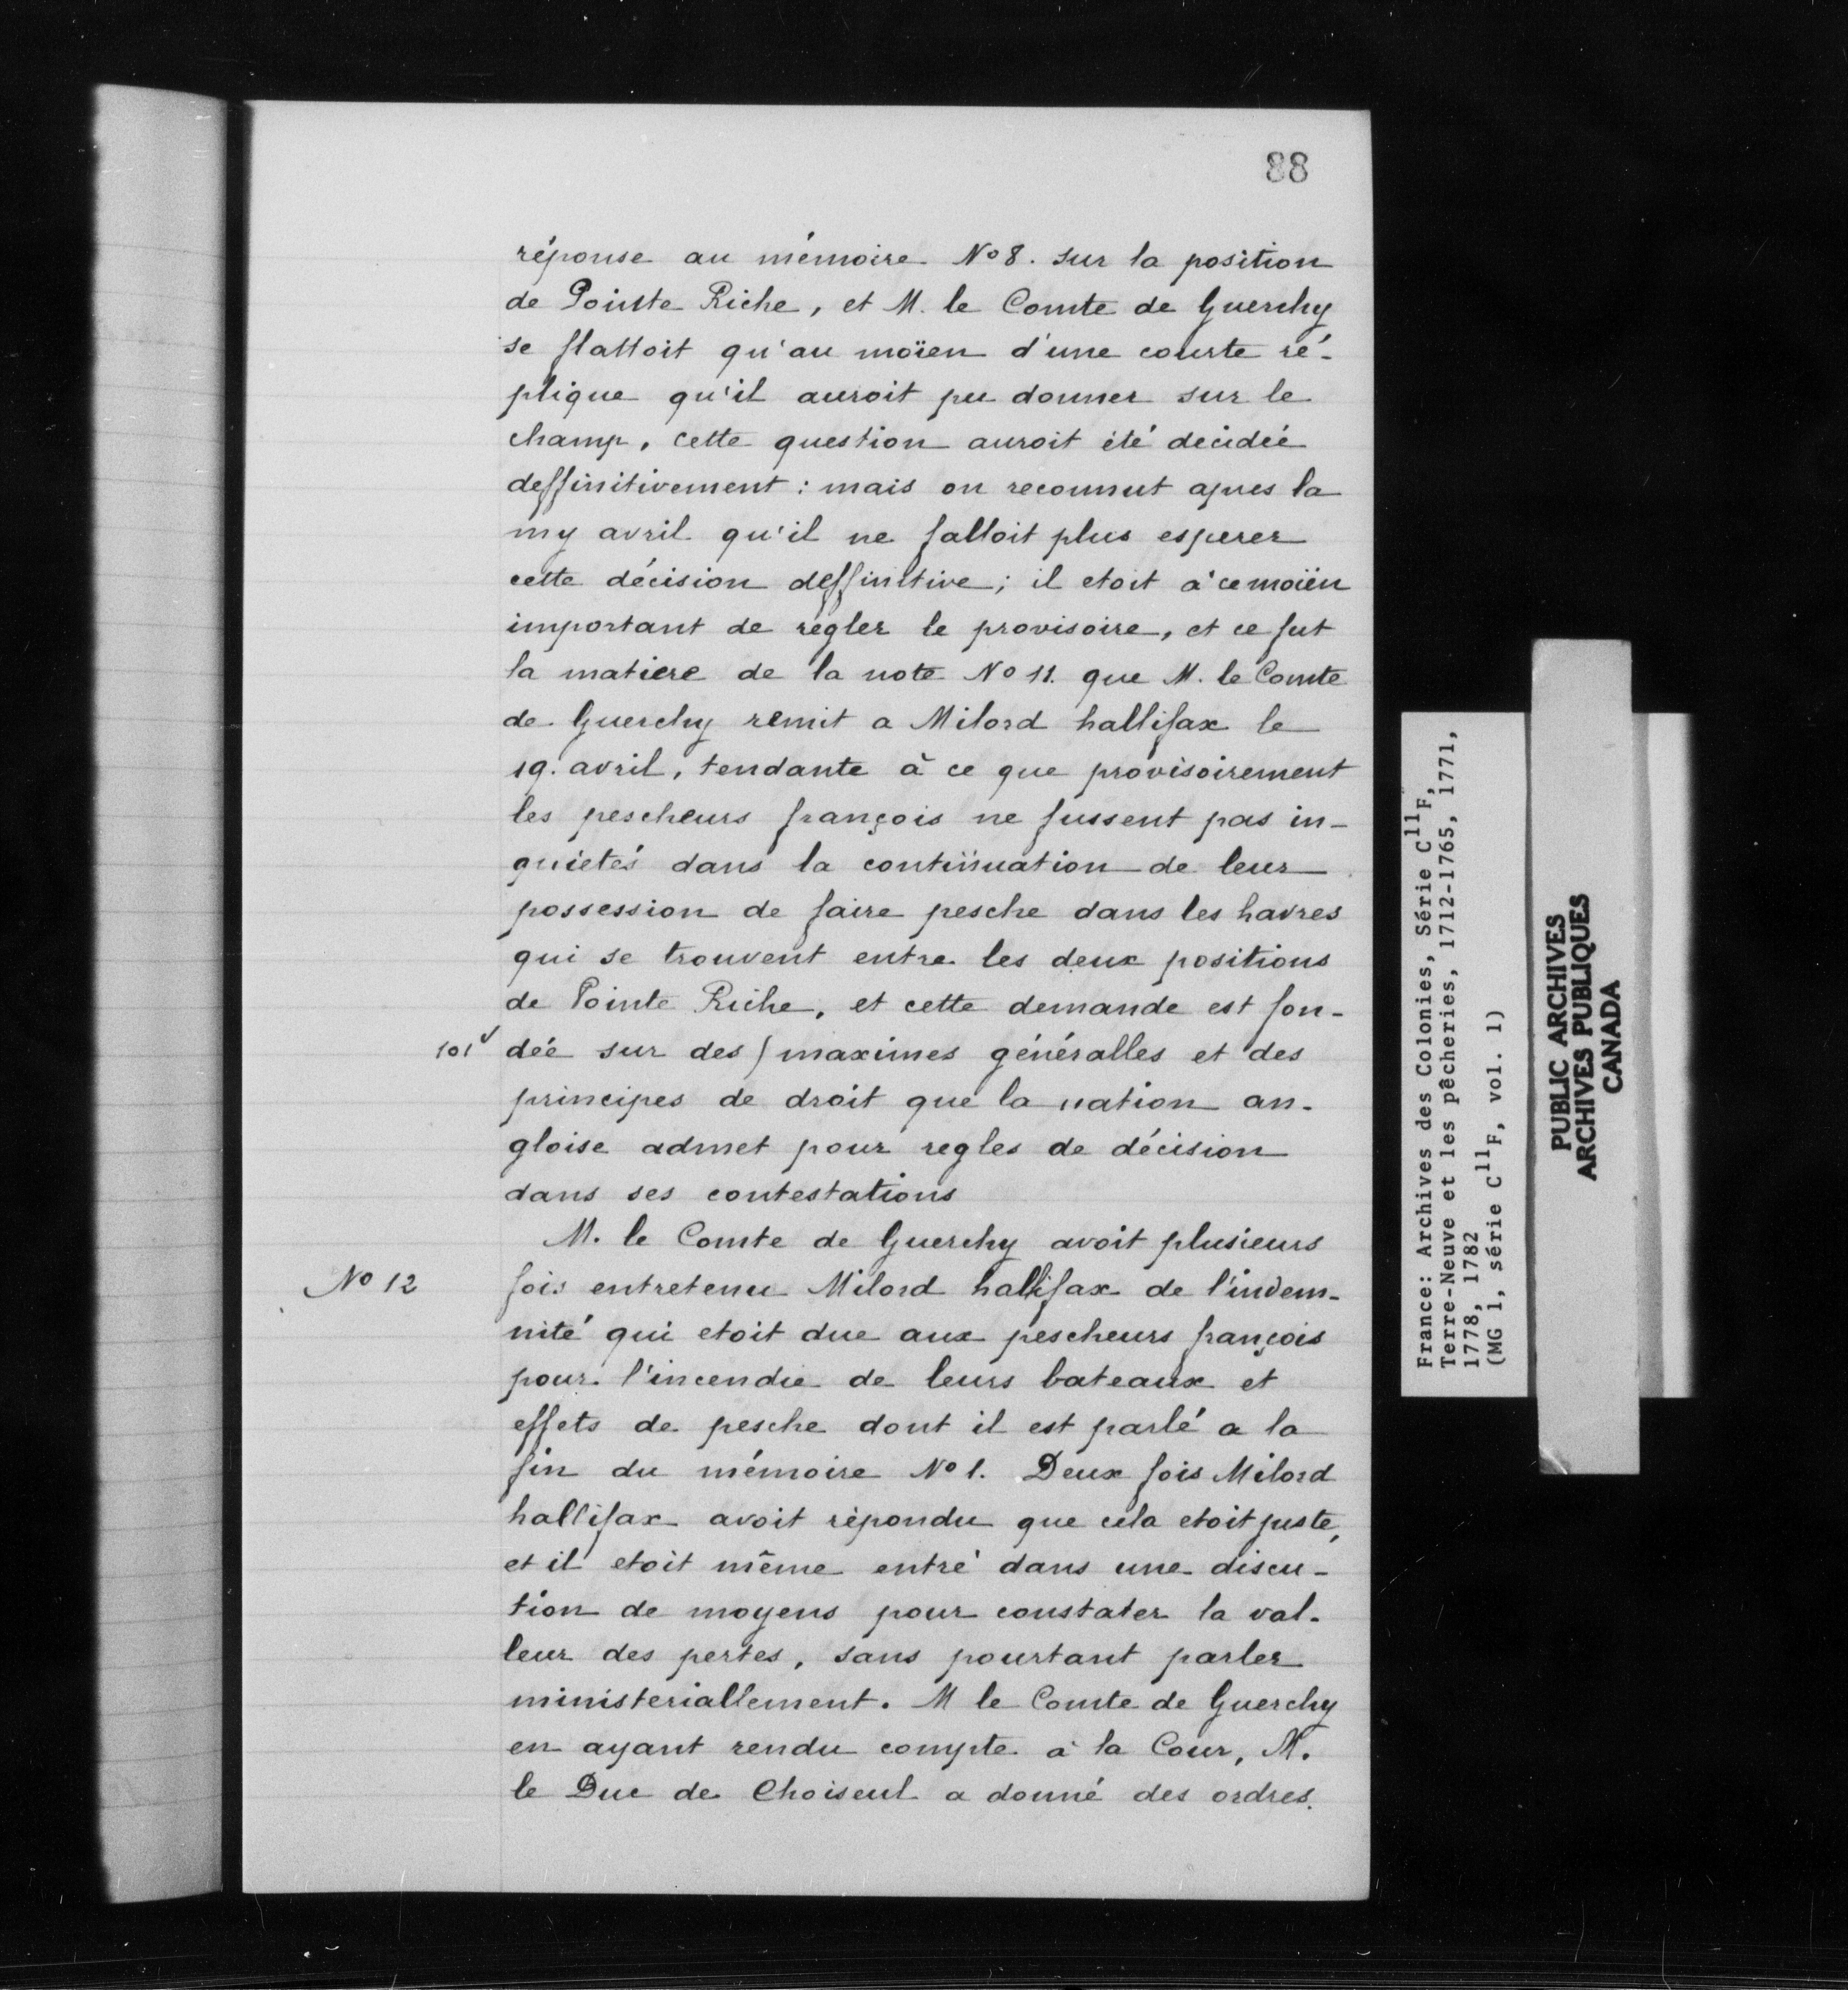 88
réponse au mémoire No 8. sur la position
de Pointe Riche, et M. le Comte de Guerchy
se flattoit qu'au moïen d'une courte ré-
plique qu'il auroit pu donner sur le
champ, cette question auroit été décidée
deffinitivement : mais on reconnut apres la
my avril qu'il ne falloit plus esperer
cette décision deffinitive ; il etoit à ce moïen
important de régler le provisoire, et ce fut
la matiere de la note No 11. que M. le Comte
de Guerchy remit a Milord hallifax le
19. avril, tendante à ce que provisoirement
les pescheurs françois ne fussent pas in-
quietés dans la continuation de leur
possession de faire pesche dans les havres
qui se trouvent entre les deux positions
de Pointe Riche, et cette demande est fon-
101v dée sur des / maximes généralles et des
principes de droit que la nation an-
gloise admet pour regles de décision
dans ses contestations
M. le Comte de Guerchy avoit plusieurs
No 12 fois entretenu Milord hallifax de l'indem-
nité qui etoit due aux pescheurs françois
pour l'incendie de leurs bateaux et
effets de pesche dont il est parlé a la
fin du mémoire No 1. Deux fois Milord
hallifax avoit répondu que cela etoit juste,
et il etoit même entré dans une discu-
tion de moyens pour constater la val-
leur des pertes, sans pourtant parler
ministeriallement. M le Comte de Guerchy
en ayant rendu compte à la Cour, M.
le Duc de Choiseul a donné des ordres.
France: Archives des Colonies, Série C11F,
Terre-Neuve et les pêcheries, 1712-1765, 1771,
1778, 1782
(MG 1, série C11F, vol. 1)
PUBLIC ARCHIVES
ARCHIVES PUBLIQUES
CANADA